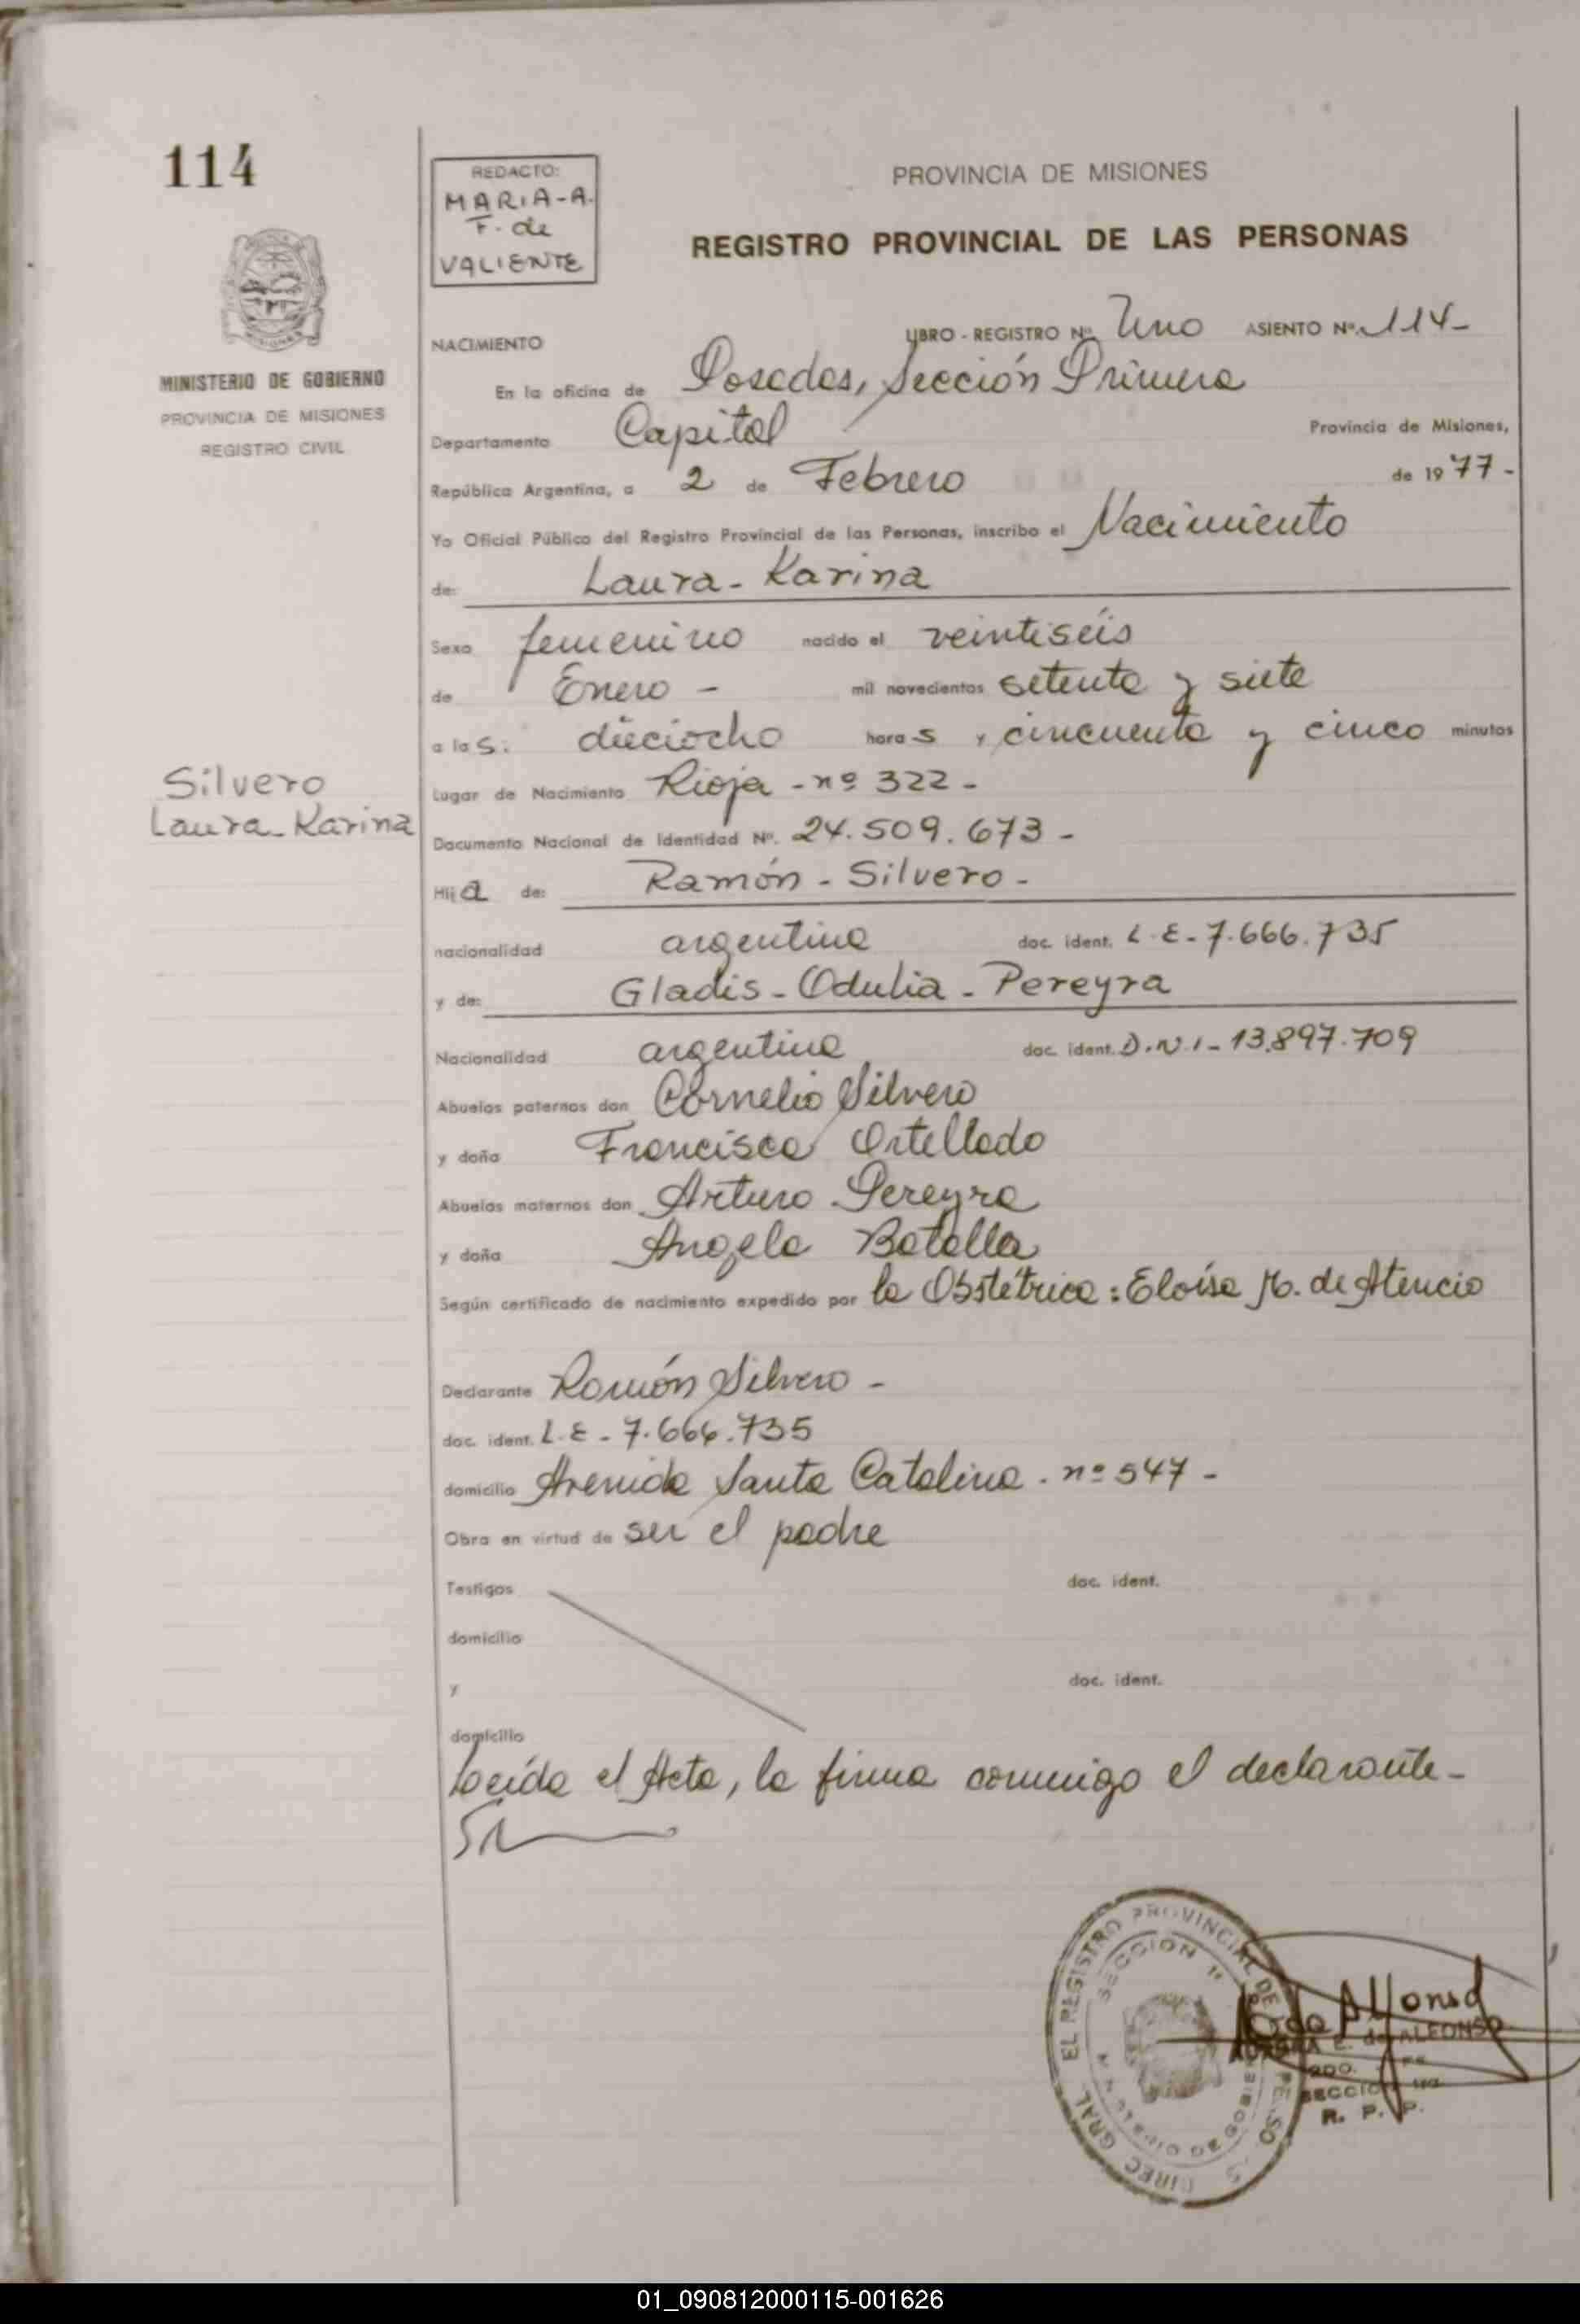 114
REDACTO:
MARIA-A.
F. de
VALIENTE
PROVINCIA DE MISIONES
REGISTRO PROVINCIAL DE LAS PERSONAS
MINISTERIO DE GOBIERNO
PROVINCIA DE MISIONES
REGISTRO CIVIL
NACIMIENTO
LIBRO - REGISTRO Nº. Uno ASIENTO Nº. 114-
En la oficina de Posadas, Sección Primera
Departamento Capital Provincia de Misiones,
República Argentina, a 2 de Febrero de 1977-
Yo Oficial Público del Registro Provincial de las Personas, inscribo el Nacimiento
de: Laura-Karina
Sexo femenino nacido el veintiséis
de Enero - mil novecientos setenta y siete
a las: dieciocho horas y cincuenta y cinco minutos
Silvero
Laura-Karina
Lugar de Nacimiento Rioja - nº 322 -
Documento Nacional de Identidad Nº. 24.509.673 -
Hija de: Ramón - Silvero -
nacionalidad argentina doc. ident. L.E- 7.666.735
y de: Gladis - Odulia - Pereyra
Nacionalidad argentina doc. ident. D.N.I- 13.897.709
Abuelos paternos don Cornelio Silvero
y doña Francisca Ortellado
Abuelos maternos don Arturo Pereyra
y doña Angela Batalla
Según certificado de nacimiento expedido por la Obstétrica: Eloísa M. de Atencio
Declarante Ramón Silvero -
doc. ident. L.E - 7.666.735
domicilio Avenida Santa Catalina - nº 547 -
Obra en virtud de ser el padre
Testigos doc. ident.
domicilio
y doc. ident.
domicilio
Leída el Acta, la firma conmigo el declarante-
DIREC GRAL EL REGISTRO PROVINCIAL DE
SECCION 1ª
de ALFONSO
R. P. P.
01_090812000115-001626